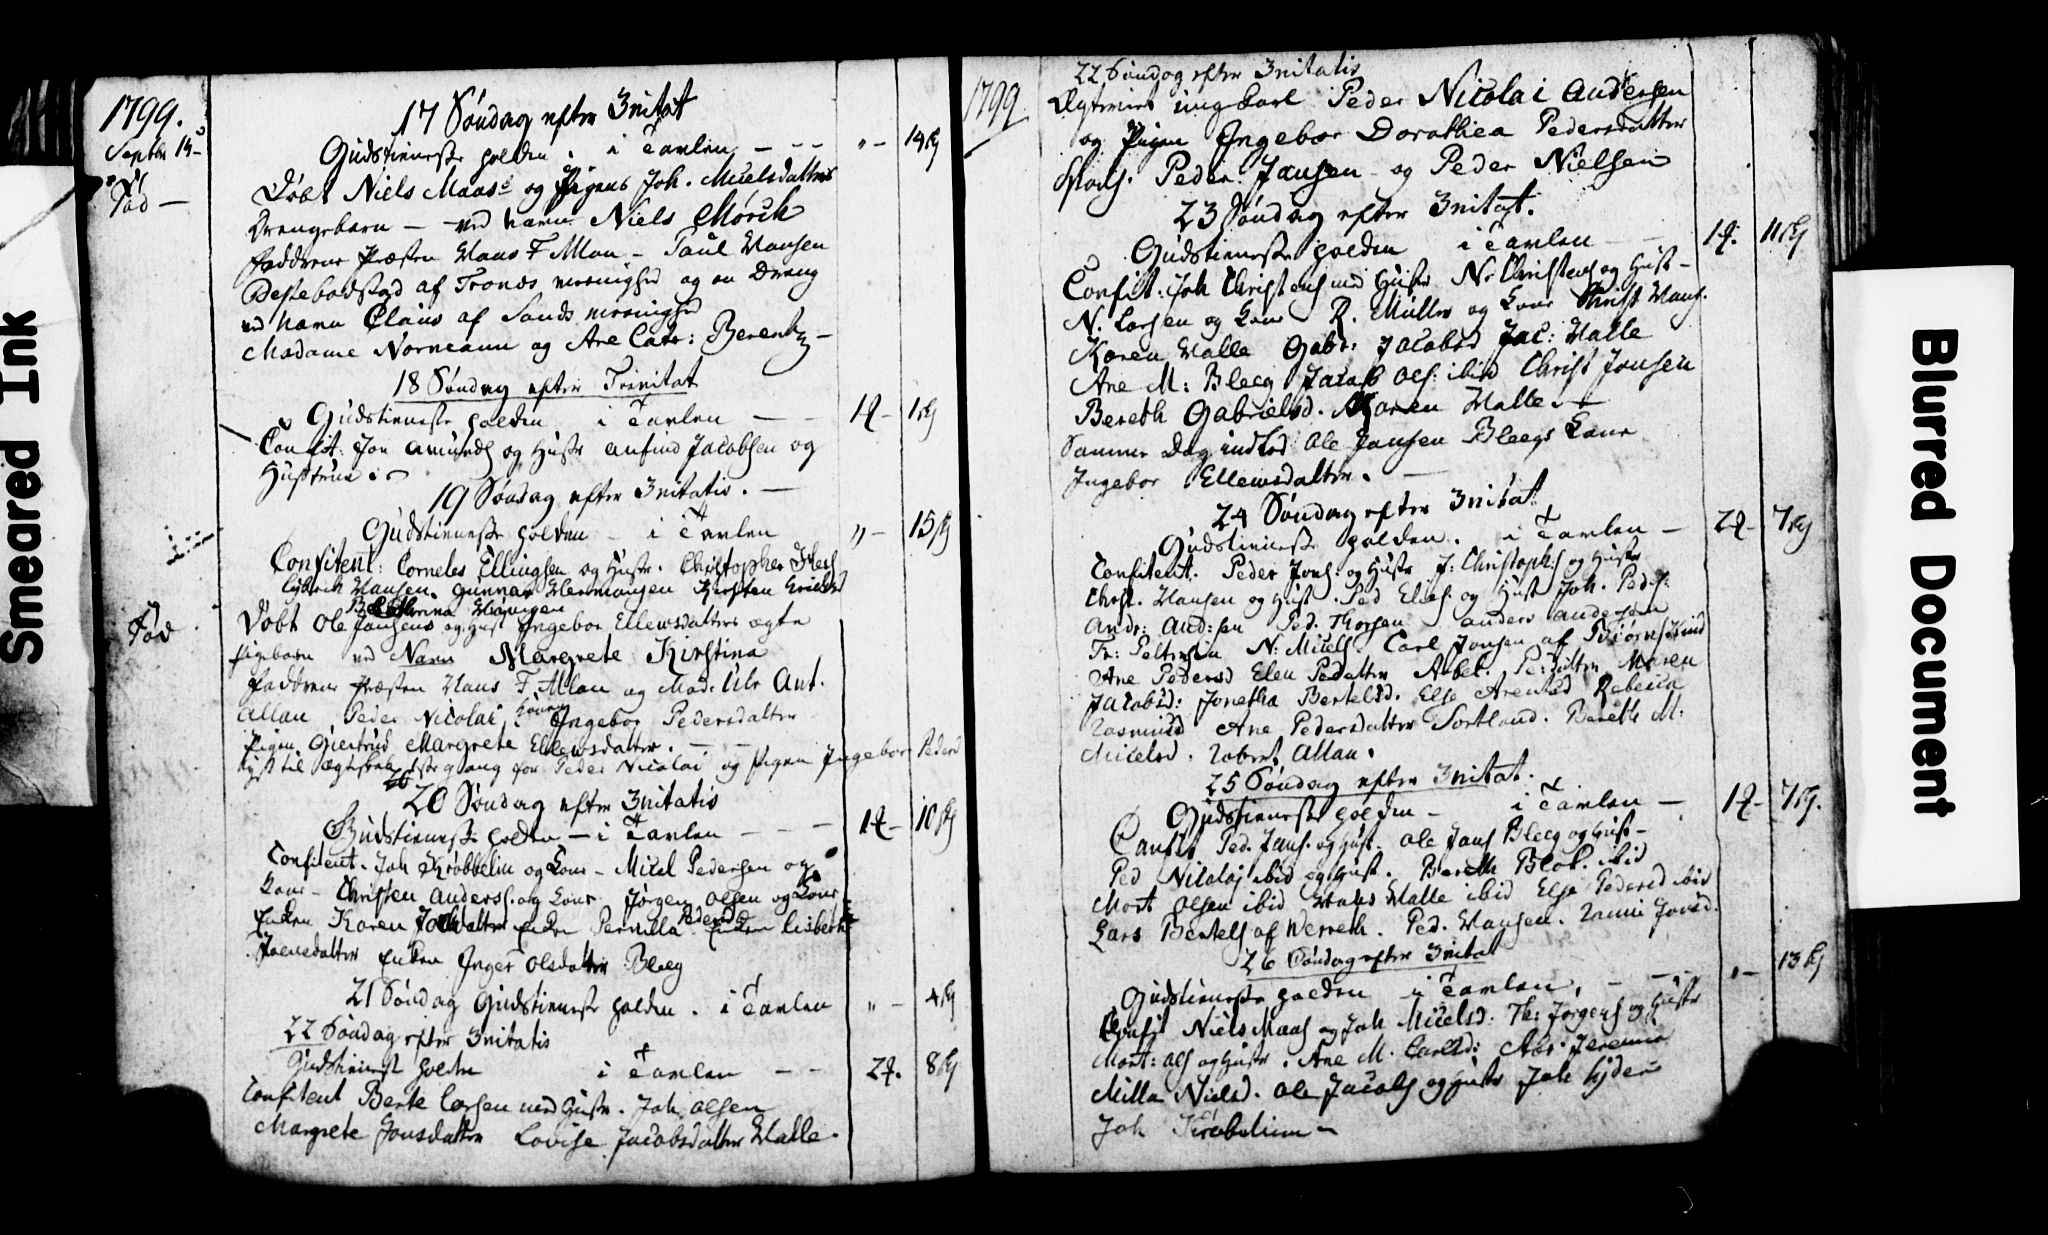 1799.
Septbr 15
Fød —
Fød
17 Søndag efter 3nitat
Gudstienneste holden. i Tavlen — " — 14 ß
Døbt Niels Maas og Pigens Joh. Miclsdatters
Drengebarn — ved Navn Niels Mørch
Faddrene Præsten Hans F Allan — Paul Hansen
af Tronds menighed og en Dreng
ved Navn Claus af Sands menighed
Madame Normann og Ane Catr: Berentz —
18 Søndag efter Trinitat
Gudstieneste holden i Tavlen — 1 — 1 ß
Confit: Jon Amunds og Hustr Anfind Jacobsen og
Hustrue
19 Søndag efter 3nitatis. —
Gudstienneste holden — i Tavlen " — 15 ß
Confitent: Corneles Ellingsen og Hustr. Christopher
Hansen. Gunnar Hermansen Kirsten
Døbt Ole Jansens og Hust Ingebor Ellewsdatters ægte
Pigebarn ved Navn Margrete Kirstina
Faddrene Præsten Hans F. Allan og Mad. Ulr Ant.
Allan Peder Nicolai, Ingebor Pedersdatter
Pigen Giertrud Margrete Ellewsdatter. —
lyst til ægteskab gang for Peder Nicolai og Pigen Ingebor Pedersd
20 Søndag efter 3nitatis
Gudstienneste holden — i Tavlen — 1 — 10 ß
Confitent. Joh Krøbbelin og Kone — Micel Pedersen og
Kone — Christen Anderss. og Kone Jørgen Olsen og Kone
Enken Karen Enken Pernilla Pedersd Enken Lisbeth
Joensdatter Enken Inger Olsdatter Bleeg
21 Søndag Gudstienneste holden. i Tavlen " — 4 ß
22 Søndag efter 3nitatis
Gudstienest holden i Tavlen — 2. 8 ß
Confitent Bente Larsen med Hustr. Joh. Olsen
Margrete Jonsdatter Lovise Jacobsdatter Halle.
1799
22 Søndag efter 3nitatis
Ægteviet ung Karl Peder Nicolai Andersen
og Pigen Ingebor Dorothea Pedersdatter
Peder Jansen og Peder Nielsen
23 Søndag efter 3nitat.
Gudstienneste holden i Tavlen 1. 11 ß
Confit: Joh Christens med Hustr N. Christens og Hust —
N. Larsen og Kone R. Müller og Kone Christ Hans.
Karen Halle Gabr: Jacobsd Jac: Halle
Ane M: Bleeg Jacob Ols: ibid Christ Jonsen
Bereth Gabrielsd. Maren Halle —
Samme Dag indled Ole Jansen Bleegs Kone
Ingebor Ellewsdatter. —
24 Søndag efter 3nitat.
Gudstieneste holden. i Tavlen — 2 — 7 ß
Confitent. Peder Jons. og Hustr J: Christoph: og Hustr
Christ. Hansen og Hust. Ped Elias: og Hust Joh. Peders:
Andr: And:sen Ped. Thorsen Anders Andersen
Fr: Peltersen N: Micels Carl Jonsen af
Ane Pedersd Elen Pedatter Arbet. Pe:datter Maren
Jacobsd: Jonetha Bertelsd. Else Arentsd Rebecca
Rasmusd Ane Pedersdatter Sortland. Bereth M:
Micelsd. Robert Allan.
25 Søndag efter 3nitat.
Gudstieneste holden — i Tavlen — 1 — 7 ß.
Confit Ped. Jans. og Hust. Ole Jans Bleeg og Hust —
Ped Nicolaj ibid og Hust. Bereth Blok. ibid
Mort Olsen ibid Hans Halle ibid Else Pedersd ibid
Lars Bertels af Werreth. Ped. Hansen.
26 Søndag efter 3nitat
Gudstieneste holden i Tavlen, — " — 13 ß
Confit Niels Maas og Joh Micelsd: Th: Jørgens og Hustr
Mort: Ols og Hustr. Ane M. Carlsd: Abr Jeremia
Milla Nielsd. Ole Jacobs og Hustr Joh
Joh Krøbelin —
Smeared Ink
Blurred Document